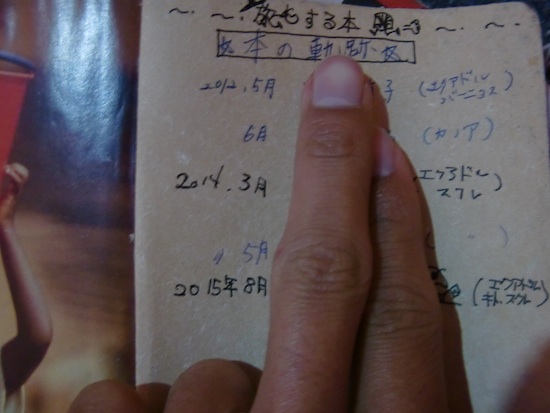 旅をする本
本の動跡
2012.5月 子 (エクアドル バーニョス)
6月 (カノア)
2014.3月 エクアドル スクレ)
〃 5月 ( 〃 )
2015年8月 (エクアドル キト.スクレ)